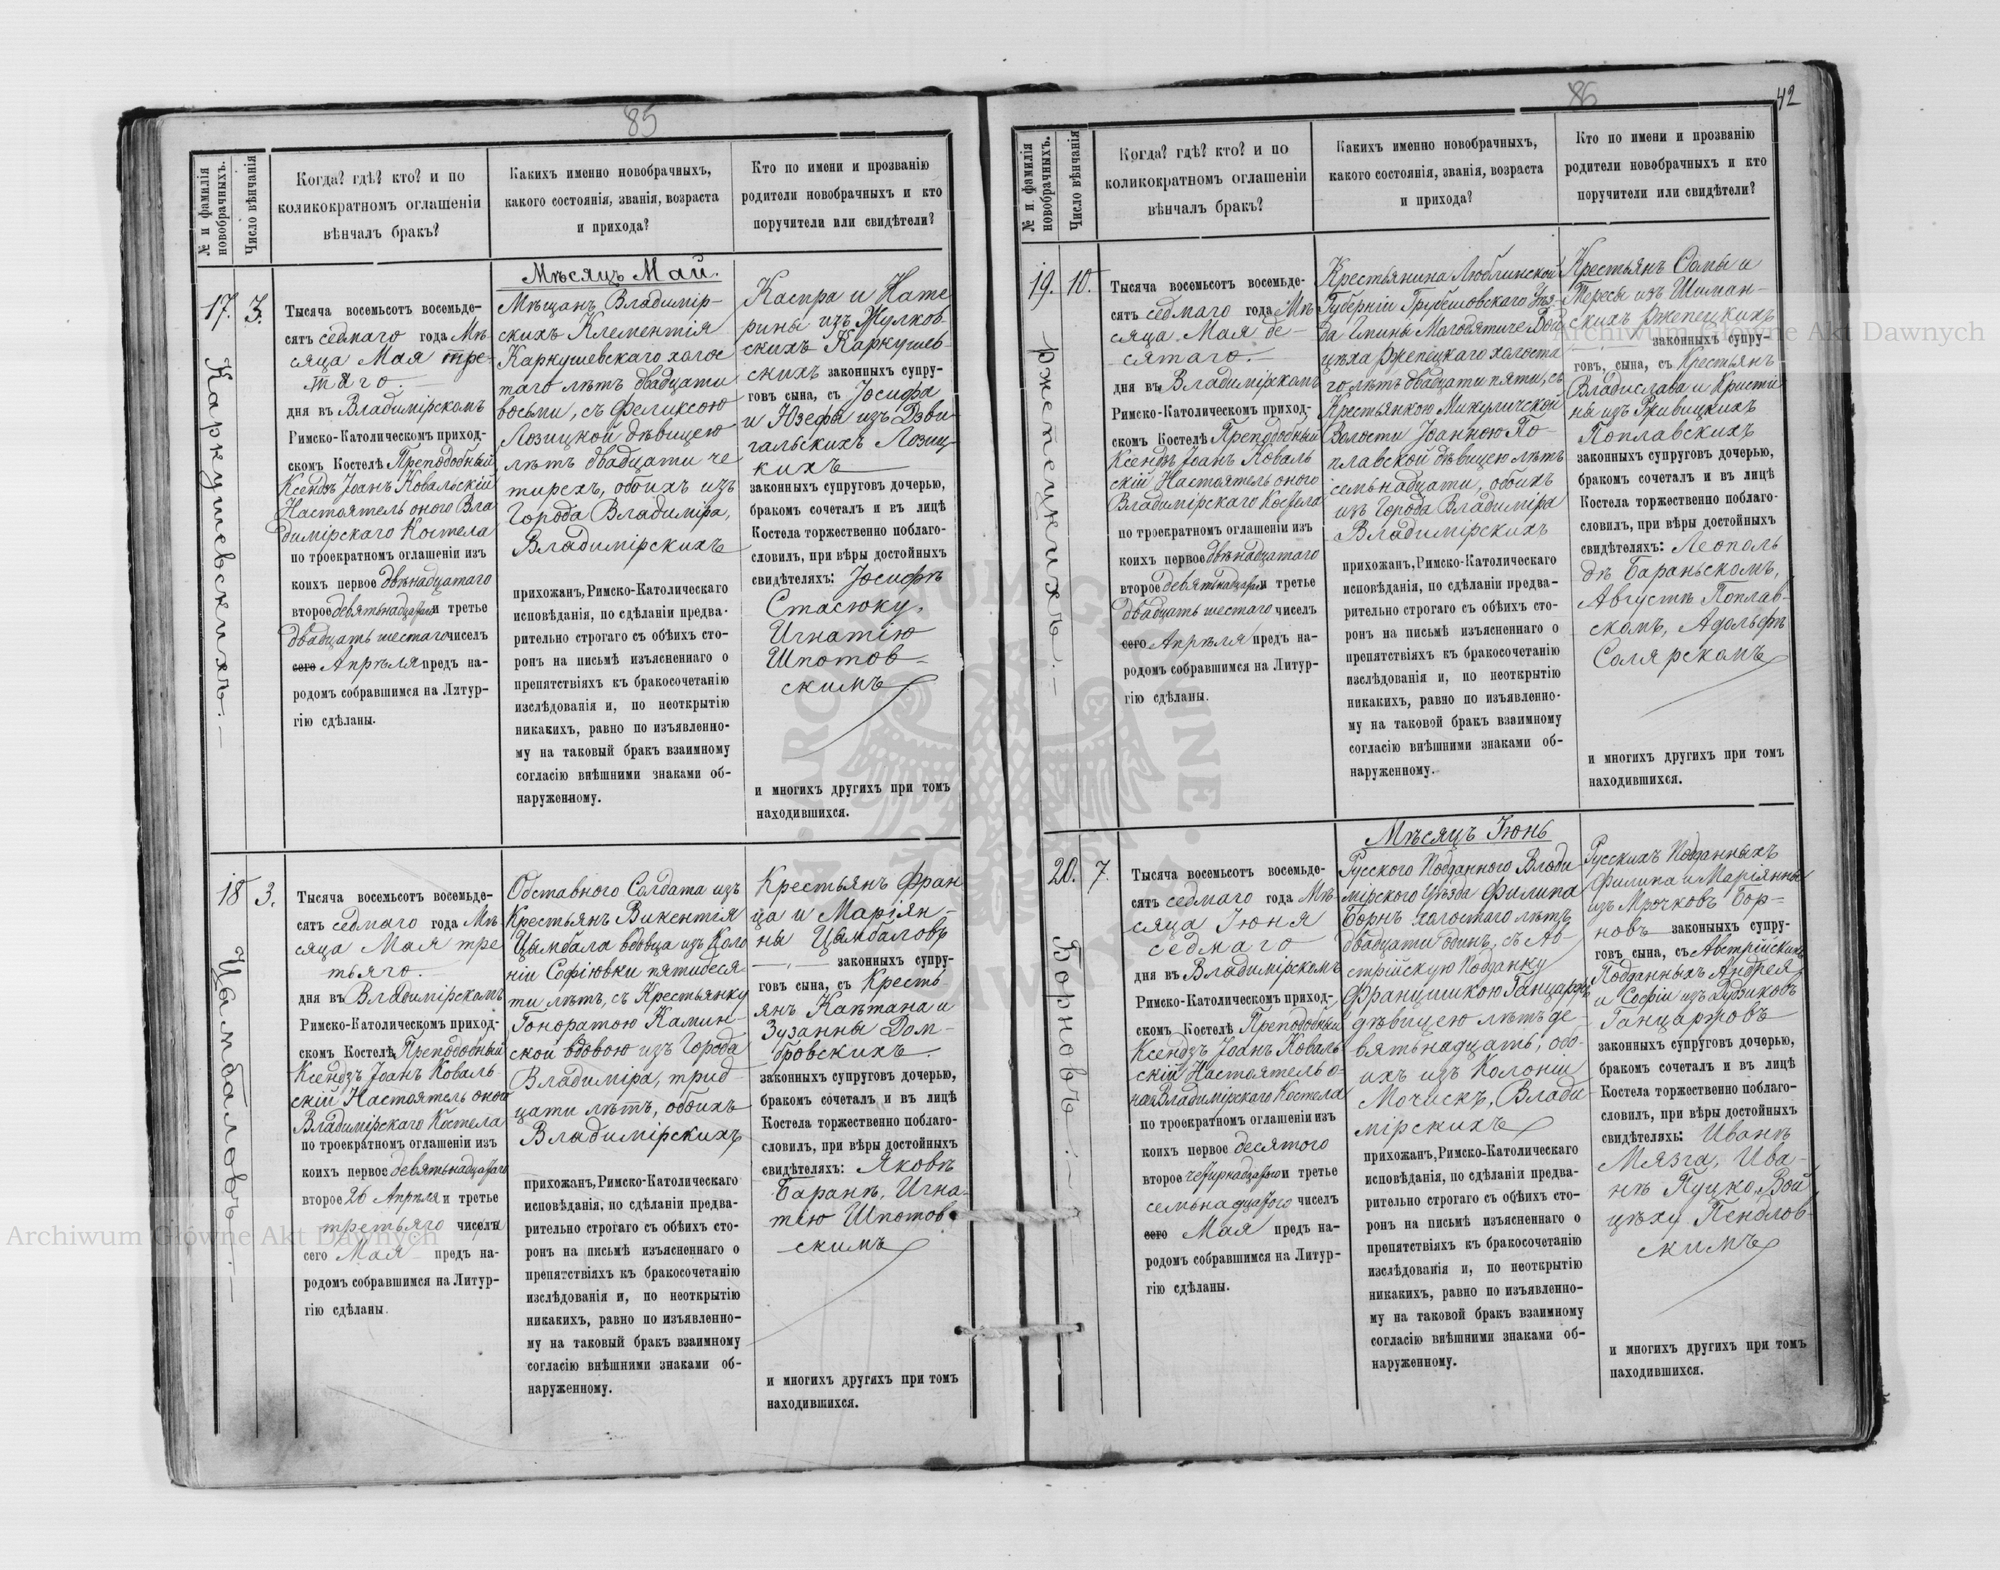 85
№ и фамилія новобрачныхъ.
Число вѣнчанія
Когда? гдѣ? кто? и по
коликократномъ оглашеніи
вѣнчалъ бракъ?
Какихъ именно новобрачныхъ,
какого состоянія, званія, возраста
и прихода?
Кто по имени и прозванію
родители новобрачныхъ и кто
поручители или свидѣтели?
17.
Каркушевскихъ.
3.
Тысяча восемьсотъ восемьде-
сятъ седмаго года Мѣ
сяца Мая тре-
тяго.
дня въ Владимірскомъ
Римско-Католическомъ приход-
скомъ Костелѣ Преподобный
Ксендзъ Іоанъ Ковальскій
Настоятель оного Вла
димірскаго Костела
по троекратномъ оглашеніи изъ
коихъ первое двѣнадцатаго
второе девятьнадцатаго и третье
двадцать шестаго чиселъ
сего Апрѣля предъ на-
родомъ собравшимся на Литур-
гію сдѣланы.
Мѣсяцъ Май.
Мѣщанъ Владимір-
скихъ Клементія
Каркушевскаго холос
таго лѣтъ двадцати
восьми, съ Феликсою
Лозицкой дѣвицею
лѣтъ двадцати че
тирехъ, обоихъ изъ
Города Владиміра,
Владимірскихъ
прихожанъ, Римско-Католическаго
исповѣданія, по сдѣланіи предва-
рительно строгаго съ обѣихъ сто-
ронъ на письмѣ изъясненнаго о
препятствіяхъ къ бракосочетанію
изслѣдованія и, по неоткрытію
никакихъ, равно по изъявленно-
му на таковый бракъ взаимному
согласію внѣшними знаками об-
наруженному.
Каспра и Кате
рины изъ Жулков
скихъ Каркушев-
скихъ законныхъ супру-
говъ сына, съ Іосифа
и Юзефы изъ Дзви
гальскихъ Лозиц-
кихъ
законныхъ супруговъ дочерью,
бракомъ сочеталъ и въ лицѣ
Костела торжественно поблаго-
словилъ, при вѣры достойныхъ
свидѣтеляхъ: Іосифѣ
Стасюку,
Игнатію
Шпотов-
скимъ
и многихъ другихъ при томъ
находившихся.
18
Цымбаловъ.
3.
Тысяча восемьсотъ восемьде-
сятъ седмаго года Мѣ
сяца Мая тре
тьяго.
дня въ Владимірскомъ
Римско-Католическомъ приход-
скомъ Костелѣ Преподобный
Ксендзъ Іоанъ Коваль-
скій Настоятель оного
Владимірскаго Костела
по троекратномъ оглашеніи изъ
коихъ первое девятьнадцатаго
второе 26 Апрѣля и третье
третьяго чиселъ
сего Мая предъ на-
родомъ собравшимся на Литур-
гію сдѣланы.
Обставного Солдата изъ
Крестьянъ Викентія
Цымбала вдовца изъ Коло
ніи Софіювки пятидеся-
ти лѣтъ, съ Крестьянку
Гоноратою Камин-
ской вдовою изъ Города
Владиміра, трид-
цати лѣтъ, обоихъ
Владимірскихъ
прихожанъ, Римско-Католическаго
исповѣданія, по сдѣланіи предва-
рительно строгаго съ обѣихъ сто-
ронъ на письмѣ изъясненнаго о
препятствіяхъ къ бракосочетанію
изслѣдованія и, по неоткрытію
никакихъ, равно по изъявленно-
му на таковый бракъ взаимному
согласію внѣшними знаками об-
наруженному.
Крестьянъ Фран
ца и Маріян-
ны Цымбаловъ
законныхъ супру-
говъ сына, съ Кресть
янъ Каѣтана и
Зузанны Дом-
бровскихъ.
законныхъ супруговъ дочерью,
бракомъ сочеталъ и въ лицѣ
Костела торжественно поблаго-
словилъ, при вѣры достойныхъ
свидѣтеляхъ: Яковѣ
Баранѣ, Игна-
тію Шпотов
скимъ
и многихъ другихъ при томъ
находившихся.
86
42
№ и фамилія новобрачныхъ.
Число вѣнчанія
Когда? гдѣ? кто? и по
коликократномъ оглашеніи
вѣнчалъ бракъ?
Какихъ именно новобрачныхъ,
какого состоянія, званія, возраста
и прихода?
Кто по имени и прозванію
родители новобрачныхъ и кто
поручители или свидѣтели?
19.
Ржепецкихъ.
10.
Тысяча восемьсотъ восемьде-
сятъ седмаго года Мѣ
сяца Мая де-
сятаго.
дня въ Владимірскомъ
Римско-Католическомъ приход-
скомъ Костелѣ Преподобный
Ксендзъ Іоанъ Коваль
скій Настоятель оного
Владимірскаго Костела
по троекратномъ оглашеніи изъ
коихъ первое двѣнадцатаго
второе девятнадцатаго и третье
двадцать шестаго чиселъ
сего Апрѣля предъ на-
родомъ собравшимся на Литур-
гію сдѣланы.
Крестьянина Люблинской
Губерніи Грубешовскаго Уѣз-
да Гмины Вой
цѣха Ржепецкаго холоста
го лѣтъ двадцати пяти, съ
Крестьянкою Микуличской
Волости Іоанною По-
плавской дѣвицею лѣтъ
семьнадцати, обоихъ
изъ Города Владиміра
Владимірскихъ
прихожанъ, Римско-Католическаго
исповѣданія, по сдѣланіи предва-
рительно строгаго съ обѣихъ сто-
ронъ на письмѣ изъясненнаго о
препятствіяхъ къ бракосочетанію
изслѣдованія и, по неоткрытію
никакихъ, равно по изъявленно-
му на таковой бракъ взаимному
согласію внѣшними знаками об-
наруженному.
Крестьянъ Ѳомы и
Тересы изъ Шиман-
скихъ Ржепецкихъ
законныхъ супру-
говъ, сына, съ Крестьянъ
Владислава и Кристи
ны изъ Рживицкихъ
Поплавскихъ
законныхъ супруговъ дочерью,
бракомъ сочеталъ и въ лицѣ
Костела торжественно поблаго-
словилъ, при вѣры достойныхъ
свидѣтеляхъ: Леополь
дѣ Бараньскомъ,
Августѣ Поплав-
скомъ, Адольфѣ
Солярскомъ
и многихъ другихъ при томъ
находившихся.
20.
Борновъ.
7.
Тысяча восемьсотъ восемьде-
сятъ седмаго года Мѣ-
сяца Іюня
седмаго
дня въ Владимірскомъ
Римско-Католическомъ приход-
скомъ Костелѣ Преподобный
Ксендзъ Іоанъ Коваль-
скій Настоятель о-
ного Владимірскаго Костела
по троекратномъ оглашеніи изъ
коихъ первое десятого
второе четирнадцатого и третье
семьнадцатого чиселъ
сего Мая предъ на-
родомъ собравшимся на Литур-
гію сдѣланы.
Мѣсяцъ Іюнь
Русского Подданного Влади-
мірского Уѣзда Филипа
Борнъ холостаго лѣтъ
двадцати одинъ, съ Ав-
стрійскую Подданку
Францишкою Ганцаржъ
дѣвицею лѣтъ де-
вятьнадцать, обо-
ихъ изъ Колоніи
Мочискъ, Влади-
мірскихъ
прихожанъ, Римско-Католическаго
исповѣданія, по сдѣланіи предва-
рительно строгаго съ обѣихъ сто-
ронъ на письмѣ изъясненнаго о
препятствіяхъ къ бракосочетанію
изслѣдованія и, по неоткрытію
никакихъ, равно по изъявленно-
му на таковой бракъ взаимному
согласію внѣшними знаками об-
наруженному.
Русскихъ Подданныхъ
Филипа и Маріянны
изъ Мрочковъ Бор-
новъ законныхъ супру-
говъ сына, съ Австрійскихъ
Подданныхъ Андрея
и Софіи изъ Дудиковъ
Ганцаржовъ
законныхъ супруговъ дочерью,
бракомъ сочеталъ и въ лицѣ
Костела торжественно поблаго-
словилъ, при вѣры достойныхъ
свидѣтеляхъ: Иванѣ
Мязга, Ива-
нѣ Пуцко, Вой
цѣху Пендлов-
скимъ
и многихъ другихъ при томъ
находившихся.
Archiwum Główne Akt Dawnych
Archiwum Główne Akt Dawnych